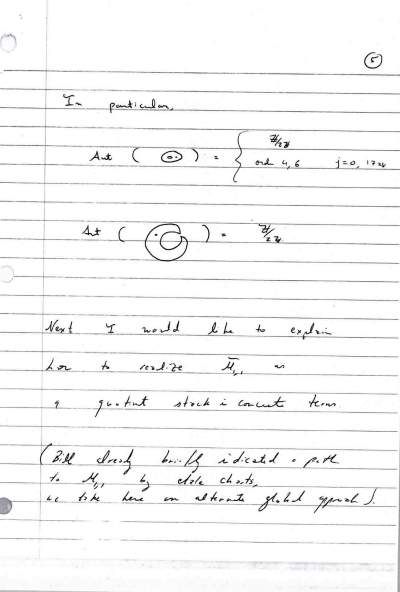 5
In particular,
Aut ( ) = { Z/2Z
ord 4, 6 j=0, 1728
Aut ( ) = Z/2Z
Next I would like to explain
how to realize M̄₁,₁ as
a quotient stack in concrete terms
(Bill already briefly indicated a path
to M₁,₁ by etale charts,
we take here an alternate global approach).